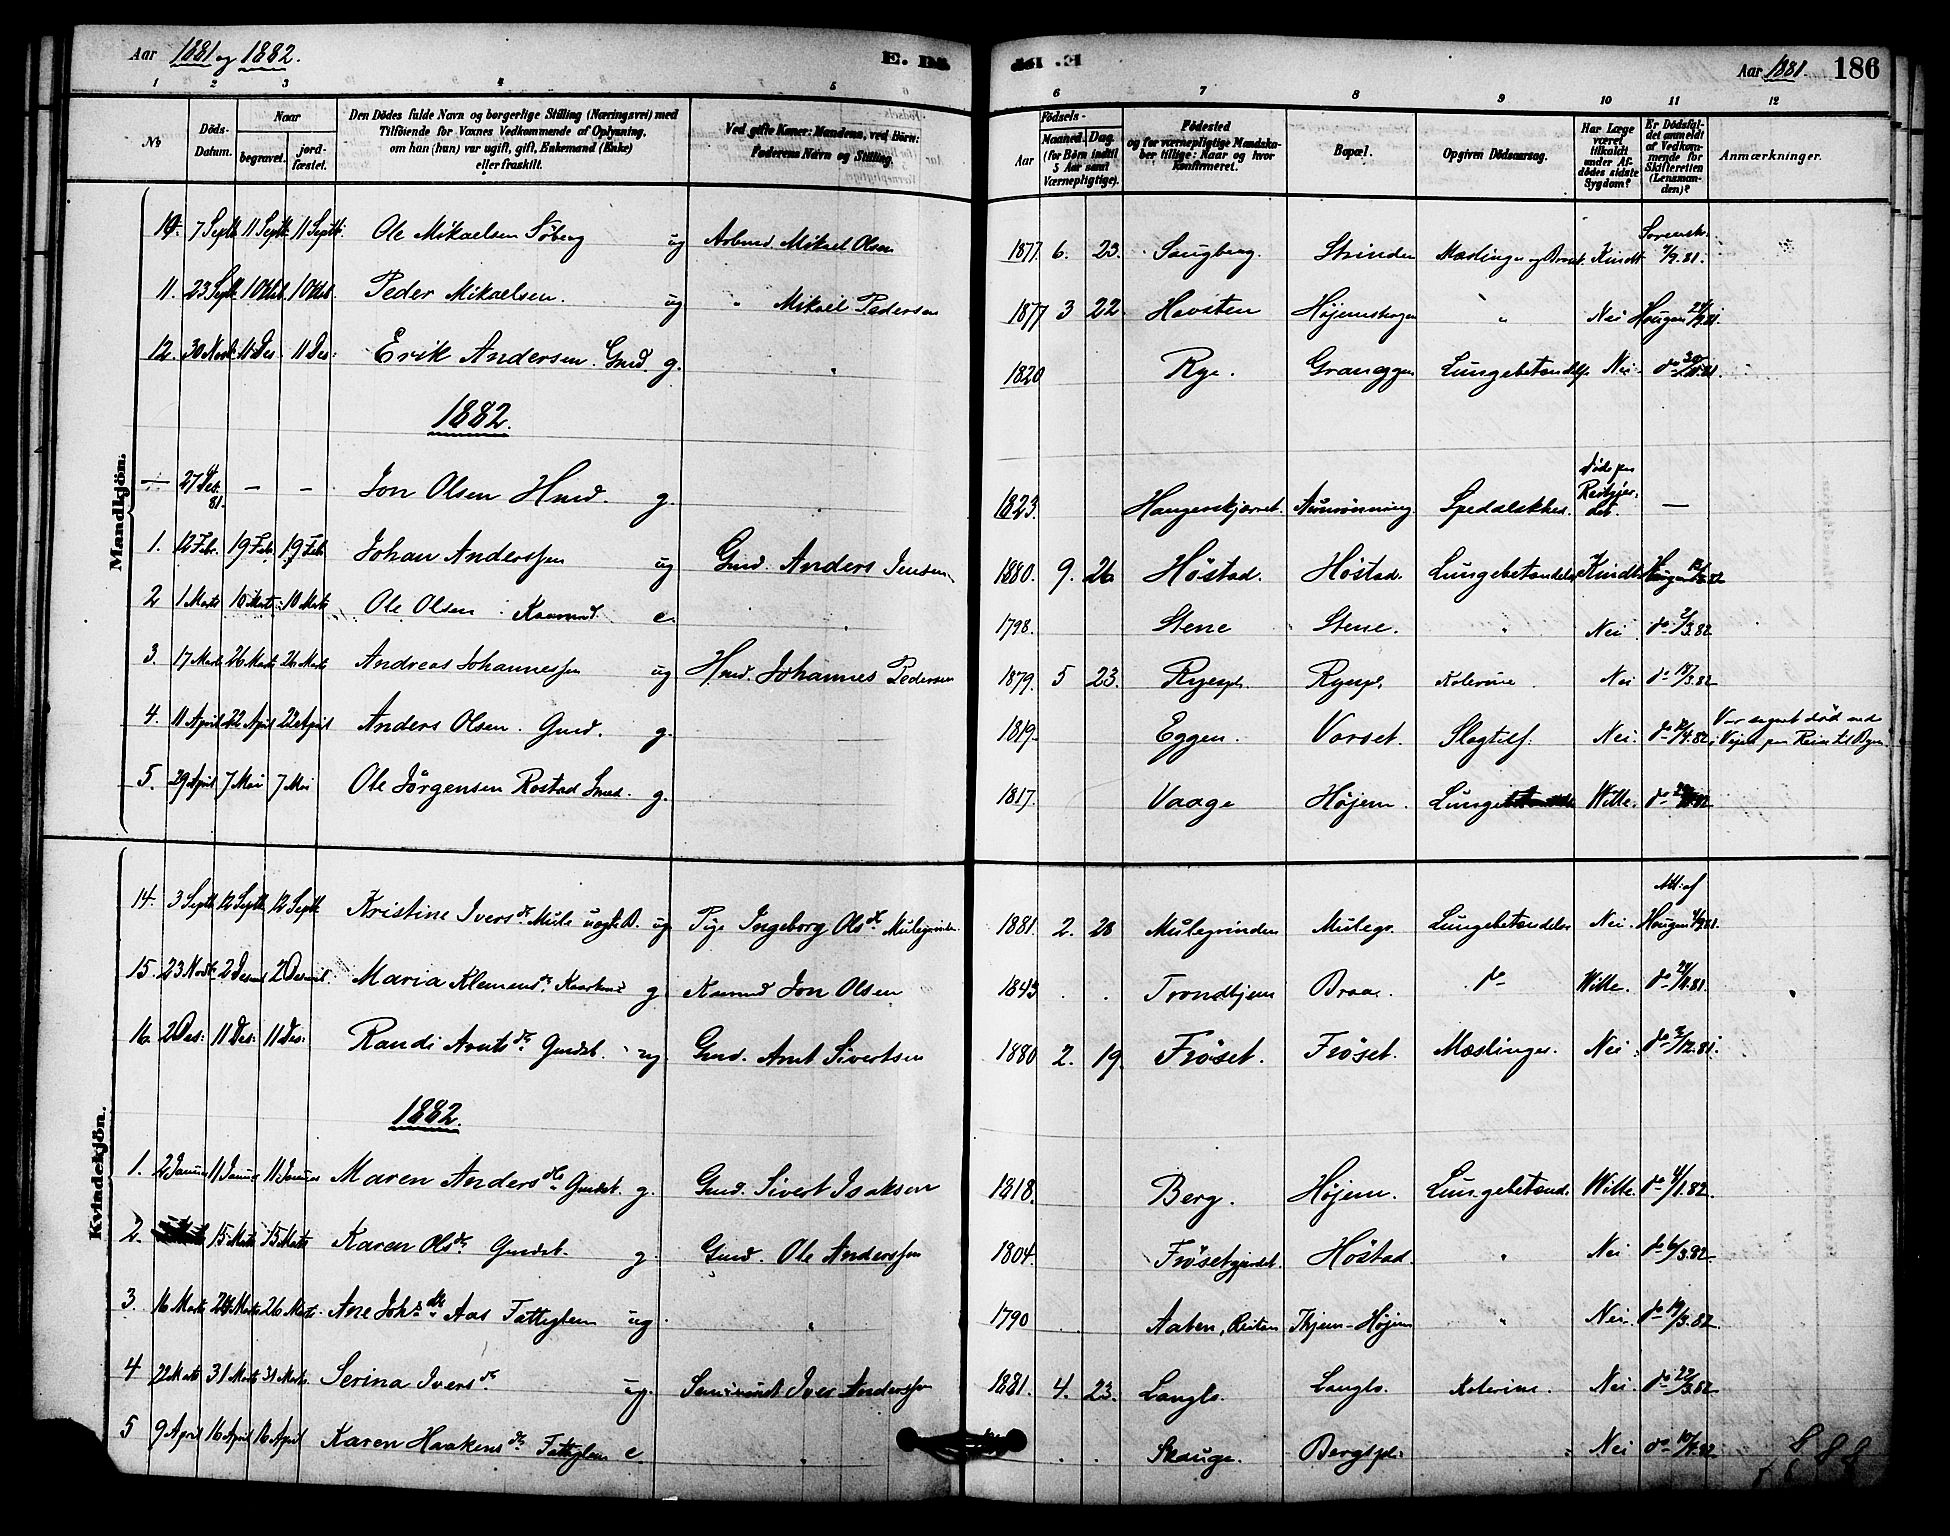 Aar 1881 og 1882. E. D. Aar 1881. 186
1 2 3 4 5 6 7 8 9 10 11 12
No
Døds-Datum.
Naar
begravet.
jord-fæstet.
Den Dødes fulde Navn og borgerlige Stilling (Næringsvei) med
Tilføiende for Voxnes Vedkommende af Oplysning,
om han (hun) var ugift, gift, Enkemand (Enke)
eller fraskilt.
Ved gifte Koner: Mandens, ved Børn:
Faderens Navn og Stilling.
Fødsels-
Aar
Maaned. Dag.
(for Børn indtil
5 Aar samt
Værnepligtige).
Fødested
og for værnepligtige Mandska-
ber tillige: Naar og hvor
Konfirmeret.
Bopæl.
Opgiven Dødsaarsag.
Har Læge
været
tilkaldt
under Af-
dødes sidste
Sygdom?
Er Dødsfal-
det anmeldt
af Vedkom-
mende for
Skifteretten
(Lensman-
den)?
Anmærkninger.
Mandkjön.
10. 7 Septb 11 Septb. 11 Septb. Ole Mikaelsen Söberg ug Mikael Olsen 1877. 6. 23. Saugberg. Strinden Mæslinger og Kindt 7/9.81.
11. 23 Septb. Peder Mikaelsen. ug " Mikael Pedersen 1877 3 22. Havsten Höjemshagen " Nei Haugen
12. 30 Novb. 11 Des. 11 Des: Erik Andersen. Gmd. g. " 1820 Rye. Lungebetændelse Nei. do
1882.
÷ 27 Des. 81. – – Jon Olsen Hmd. g. 1823. Spedalskhed. Döde paa –
1. 12 Febr. 19 Feb. 19 Feb. Johan Anderssen ug Gmd. Anders Jensen 1880. 9. 26 Höstad. Höstad. Lungebetændelse Kindt Haugen
2 1 Marts 10 Marts 10 Marts Ole Olsen Kaarmd. e. 1798. Stene Stene. " Nei do 2/3.82
3. 17 Marts 26 Marts 26 Marts Andreas Johannessen ug Hmd. Johannes Pedersen 1879. 5 23. Ryespl. Ryespl. Kolerine. Nei do 18/3.82
4. 11 April 22 April 22 April Anders Olsen. Gmd. g. 1819. Eggen. Vorset. Slagtilf. Nei. do Var segnet död ned
5. 29 April 7 Mai 7 Mai Ole Jörgensen Rostad Smed. g. 1817. Vaage Höjem. Lunge Wille. do
Kvindekjön.
14. 3 Septb 12 Septb 12 Septb Kristine Ivers dr. Mule uægte B. ug Pige Ingeborg Ols dr Mulegrinden 1881. 2. 28 Mulegrinden Mulegr. Lungebetændelse Nei. Haugen
15. 23 Novb. Maria Klemens dr. g. Kaarmd Jon Olsen 1843 . . Trondhjem Braa. do Wille. do
16. 2 Des: 11 Des: 11 Des: Randi Arnts dr. Gmdsb. ug Gmd. Arnt Sivertsen 1880 2. 19. Fröset. Fröset. Mæslinger. Nei. do 3/12.81.
1882.
1. 2 Januar 11 Januar 11 Januar Maren Anders dr. Gmdsk. g. Gmd. Sivert Isaksen 1818. Berg. Höjem. Lungebetænd. Wille. do 4/1.82.
2. 15 Marts 15 Marts Karen Ols dr. Gmdsk. g. Gmd. Ole Anderssen 1804. Frösetgjerdet. Höstad. " Nei do 6/3.82.
3. 16 Marts 26 Marts 26 Marts. Ane Joh s. dr. Aas Fattiglem ug. " 1790 Aaben, Leiten Höjem " Nei. do 19/3.82.
4 22 Marts 31 Marts 31 Marts Serina Ivers dr ug. Iver Anderssen 1881. 4. 23. Langlo. Langlo. Kolerine. Nei. do 23/3.82
5 9 April 16 April 16 April Karen Haakens dr. Fattiglem e " . . Skauge. Bergspl. " Nei do